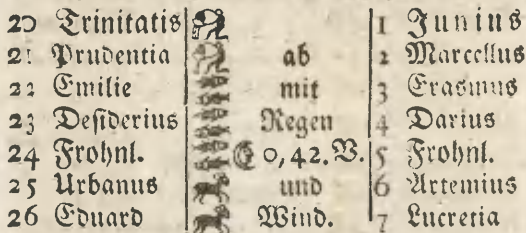 20 Trinitatis 1 Junius
21 Prudentia ab 2 Marcellus
22 Emilie mit 3 Erasmus
23 Desiderius Regen 4 Darius
24 Frohnl. 0,42.V. 5 Frohnl.
25 Urbanus und 6 Artemius
26 Eduard Wind. 7 Lucretia